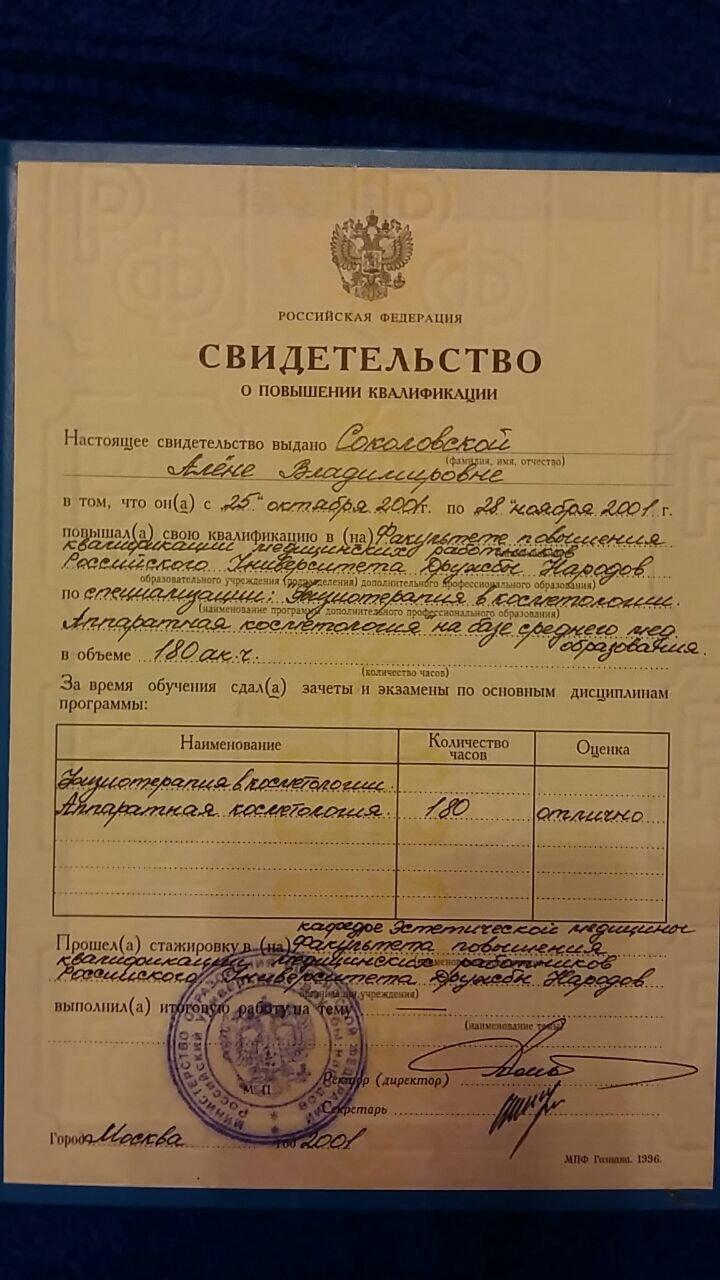 РОССИЙСКАЯ ФЕДЕРАЦИЯ
СВИДЕТЕЛЬСТВО
О ПОВЫШЕНИИ КВАЛИФИКАЦИИ
Настоящее свидетельство выдано Соколовской
(фамилия, имя, отчество)
Алёне Владимировне
в том, что он(а) с 25 " октября 2001г. по 28 " ноября 2001 г.
повышал(а) свою квалификацию в (на) Факультете повышения
квалификации медицинских работников
Российского Университета Дружбы Народов
образовательного учреждения (подразделения) дополнительного профессионального образования)
по специализации: Физиотерапия в косметологии.
(наименование программы дополнительного профессионального образования)
Аппаратная косметология на базе среднего мед.
образования.
в объеме 180 ак.ч.
(количество часов)
За время обучения сдал(а) зачеты и экзамены по основным дисциплинам
программы:
Наименование Количество часов Оценка
Физиотерапия в косметологии.
Аппаратная косметология. 180 отлично
кафедре Эстетической медицины
Прошел(а) стажировку в (на) Факультета повышения
квалификации медицинских работников
Российского Университета Дружбы Народов
учреждения)
выполнил(а) итоговую работу на тему
(наименование темы)
М.П.
Ректор (директор)
Секретарь
Город Москва год 2001
МПФ Гознака. 1996.